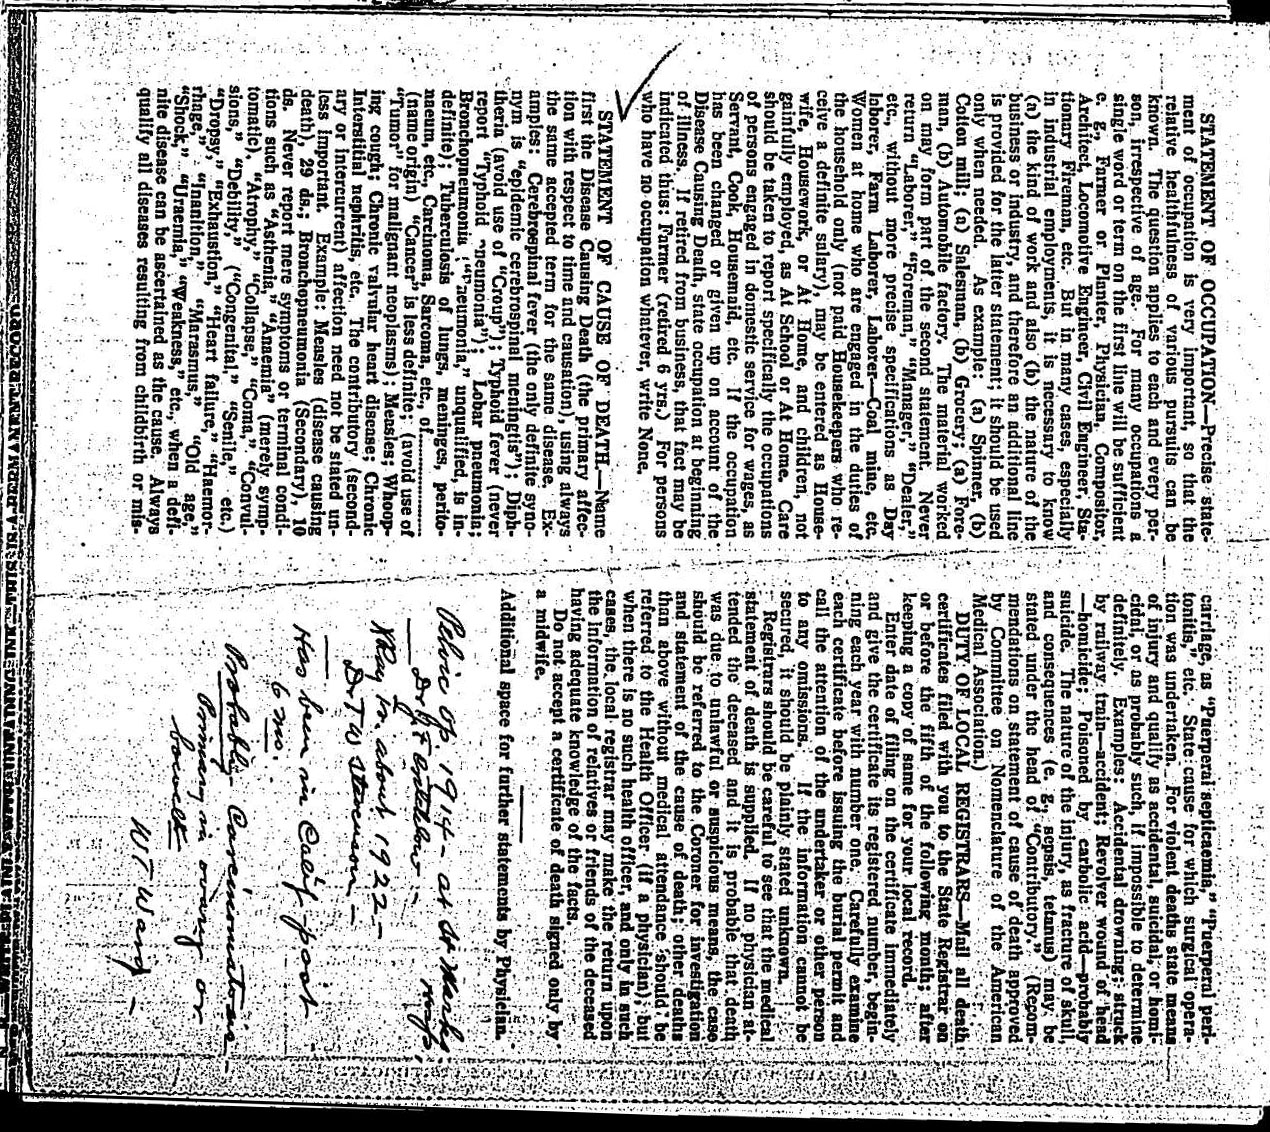 STATEMENT OF OCCUPATION—Precise state-
ment of occupation is very important, so that the
relative healthfulness of various pursuits can be
known. The question applies to each and every per-
son, irrespective of age. For many occupations a
single word or term on the first line will be sufficient
e. g., Farmer or Planter, Physician, Compositor,
Architect, Locomotive Engineer, Civil Engineer, Sta-
tionary Fireman, etc. But in many cases, especially
in industrial employments, it is necessary to know
(a) the kind of work and also (b) the nature of the
business or industry, and therefore an additional line
is provided for the latter statement; it should be used
only when needed. As example: (a) Spinner, (b)
Cotton mill; (a) Salesman, (b) Grocery; (a) Fore-
man, (b) Automobile factory. The material worked
on may form part of the second statement. Never
return "Laborer," "Foreman," "Manager," "Dealer,"
etc., without more precise specifications as Day
laborer, Farm Laborer, Laborer—Coal mine, etc.
Women at home who are engaged in the duties of
the household only (not paid Housekeepers who re-
ceive a definite salary), may be entered as House-
wife, Housework, or At Home, and children, not
gainfully employed, as At School or At Home. Care
should be taken to report specifically the occupations
of persons engaged in domestic service for wages, as
Servant, Cook, Housemaid, etc. If the occupation
has been changed or given up on account of the
Disease Causing Death, state occupation at beginning
of illness. If retired from business, that fact may be
indicated thus: Farmer (retired 6 yrs.) For persons
who have no occupation whatever, write None.
STATEMENT OF CAUSE OF DEATH.—Name
first the Disease Causing Death (the primary affec-
tion with respect to time and causation), using always
the same accepted term for the same disease. Ex-
amples: Cerebrospinal fever (the only definite syno-
nym is "epidemic cerebrospinal meningitis"); Diph-
theria (avoid use of "Croup"); Typhoid fever (never
report "Typhoid pneumonia"); Lobar pneumonia;
Bronchopneumonia ("Pneumonia," unqualified, is in-
definite); Tuberculosis of lungs, meninges, perito-
naeum, etc., Carcinoma, Sarcoma, etc., of
(name origin) "Cancer" is less definite; (avoid use of
"Tumor" for malignant neoplasms); Measles; Whoop-
ing cough; Chronic valvular heart disease; Chronic
Interstitial nephritis, etc. The contributory (second-
ary or intercurrent) affection need not be stated un-
less important. Example: Measles (disease causing
death), 29 ds.; Bronchopneumonia (Secondary), 10
ds. Never report mere symptoms or terminal condi-
tions such as "Asthenia," "Anaemia" (merely symp-
tomatic), "Atrophy," "Collapse," "Coma," "Convul-
sions," "Debility," ("Congenital," "Senile," etc.)
"Dropsy," "Exhaustion," "Heart failure," "Haemor-
rhage," "Inanition," "Marasmus," "Old age,"
"Shock," "Uraemia," "Weakness," etc., when a defi-
nite disease can be ascertained as the cause. Always
qualify all diseases resulting from childbirth or mis-
carriage, as "Puerperal septicaemia," "Puerperal peri-
tonitis," etc. State cause for which surgical opera-
tion was undertaken. For violent deaths state means
of injury and qualify as accidental, suicidal, or homi-
cidal, or as probably such, if impossible to determine
definitely. Examples: Accidental drowning; struck
by railway train—accident; Revolver wound of head
—homicide; Poisoned by carbolic acid—probably
suicide. The nature of the injury, as fracture of skull,
and consequences (e. g., sepsis, tetanus) may be
stated under the head of "Contributory." (Recom-
mendations on statement of cause of death approved
by Committee on Nomenclature of the American
Medical Association.)
DUTY OF LOCAL REGISTRARS—Mail all death
certificates filed with you to the State Registrar on
or before the fifth of the following month; after
keeping a copy of same for your local record.
Enter date of filing on the certificate immediately
and give the certificate its registered number, begin-
ning each year with number one. Carefully examine
each certificate before issuing the burial permit and
call the attention of the undertaker or other person
to any omissions. If the information cannot be
secured, it should be plainly stated unknown.
Registrars should be careful to see that the medical
statement of death is supplied. If no physician at-
tended the deceased and it is probable that death
was due to unlawful or suspicious means, the case
should be referred to the Coroner for investigation
and statement of the cause of death; other deaths
than above without medical attendance should be
referred to the Health Officer (if a physician); but
when there is no such health officer, and only in such
cases, the local registrar may make the return upon
the information of relatives or friends of the deceased
having adequate knowledge of the facts.
Do not accept a certificate of death signed only by
a midwife.
Additional space for further statements by Physician.
Pelvic op. 1914 - at St Marks
Hosp.
Dr
XRay in. about 1922 -
Dr T W Stevenson -
Has been in Calif. past
6 mo.
Probably Carcinomatosis
Primary in ovary or
bowels
W T Ward -